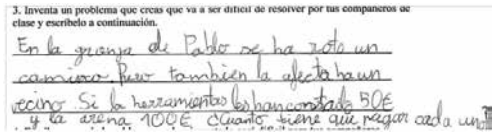 3. Inventa un problema que creas que va a ser difícil de resolver por tus compañeros de
clase y escríbelo a continuación.
En la granja de Pablo se ha roto un
camino. Pero también la afecta ha un
vecino. Si la herramientas les han constado 50€
y la arena 100€ cuanto tiene que pagar cada uno